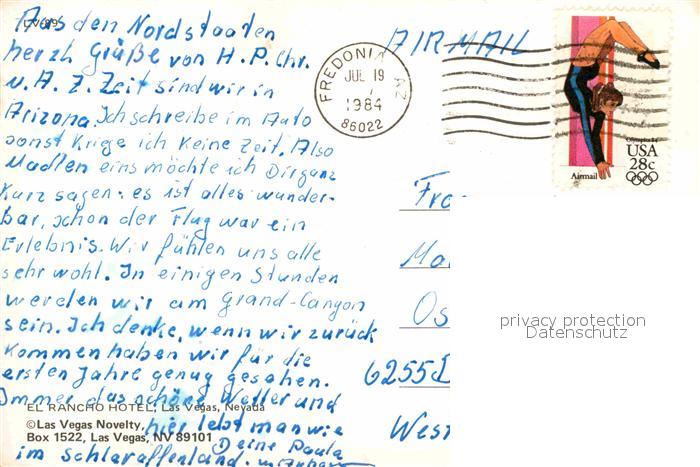 LV-89
Aus den Nordstaaten
herzl Grüße von H.P. Chr.
u. A. Z. Zeit sind wir in
Arizona. Ich schreibe im Auto
sonst Kriege ich Keine Zeit. Also
Madlen eins möchte ich Dir ganz
Kurz sagen: es ist alles wunder-
bar, schon der Flug war ein
Erlebnis. Wir fühlen uns alle
sehr wohl. In einigen Stunden
werden wir am Grand-Canyon
sein. Ich denke, wenn wir zurück
Kommen haben wir für die
ersten Jahre genug gesehen.
Immer das schöne Wetter und
hier lebt man wie
im Schlaraffenland.
Deine Paula
EL RANCHO HOTEL, Las Vegas, Nevada
©Las Vegas Novelty,
Box 1522, Las Vegas, NV 89101
AIR MAIL
FREDONIA AZ
JUL 19
1984
86022
Olympics 84
USA
28c
Airmail
Fra
Ma
Os
6255
West
privacy protection
Datenschutz